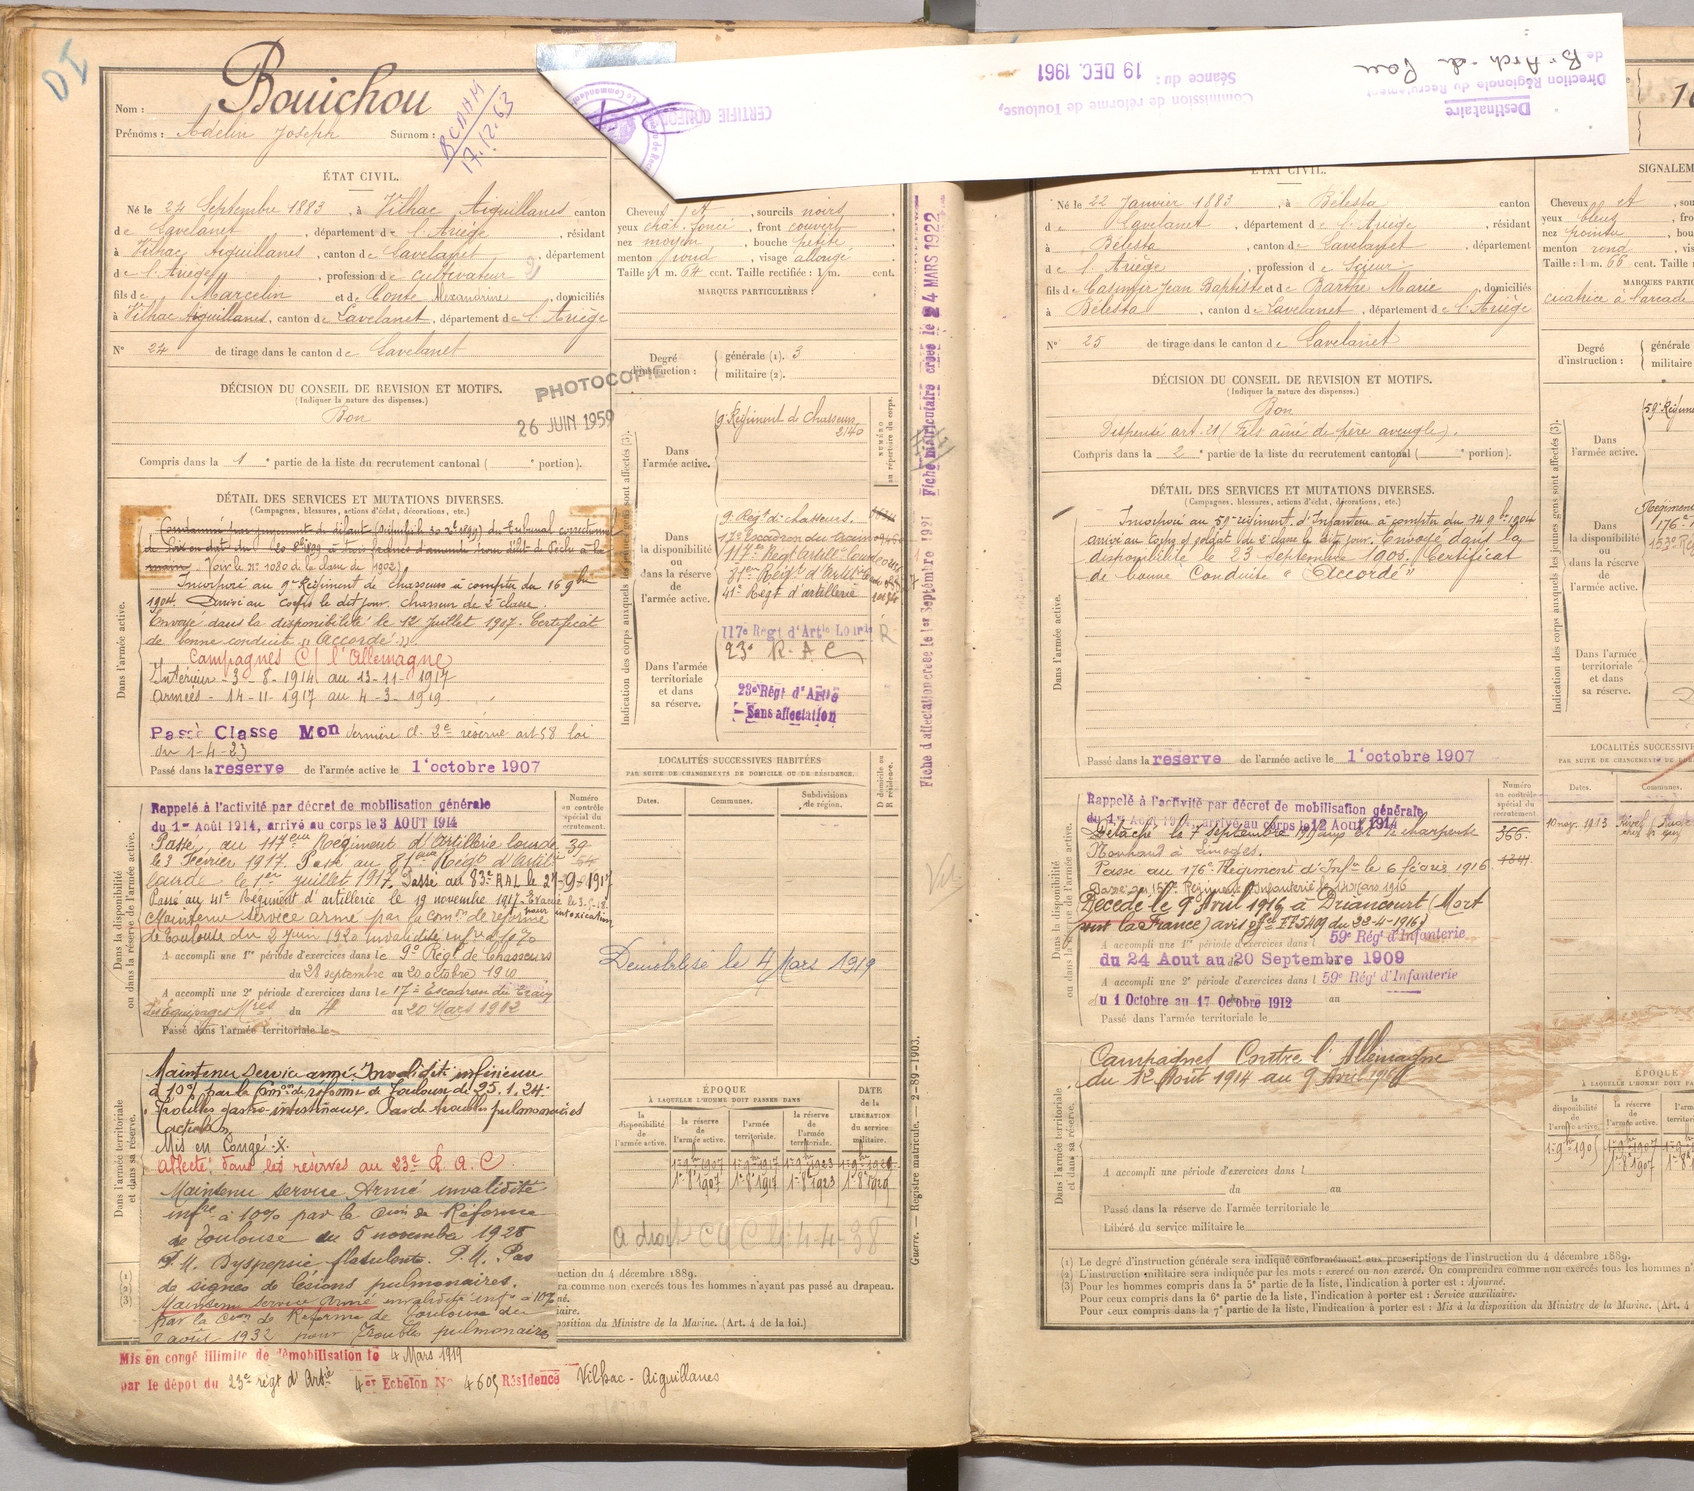 DI
Nom : Bouichou
Prénoms : Adelin Joseph Surnom :
BCAAM
17.12.63
ÉTAT CIVIL.
Né le 24 Septembre 1883, à Vilhac Aiguillanes canton
de Lavelanet, département de l'Ariège, résidant
à Vilhac Aiguillanes, canton de Lavelanet, département
de l'Ariège, profession de cultivateur
fils de Marcelin et de Conte Alexandrine, domiciliés
à Vilhac Aiguillanes, canton de Lavelanet, département de l'Ariège
N° 24 de tirage dans le canton de Lavelanet
DÉCISION DU CONSEIL DE REVISION ET MOTIFS.
(Indiquer la nature des dispenses.)
Bon
PHOTOCOPIE
26 JUIN 1959
Compris dans la 1e partie de la liste du recrutement cantonal ( e portion).
DÉTAIL DES SERVICES ET MUTATIONS DIVERSES.
(Campagnes, blessures, actions d'éclat, décorations, etc.)
Voir le n° 1080 de la classe de 1902)
Dans l'armée active.
Incorporé au 9e Régiment de chasseurs à compter du 16 9bre
1904. Arrivé au corps le dit jour. chasseur de 2e classe.
Envoyé dans la disponibilité le 12 Juillet 1907. Certificat
de bonne conduite "Accordé".
Campagnes C/ l'Allemagne
Intérieur - 3-8-1914 au 13-11-1917
Armées - 14-11-1917 au 4-3-1919
Passé Classe Mon dernière cl. 2e réserve art 58 loi
du 1-4-23
Passé dans la réserve de l'armée active le 1er octobre 1907
Dans la disponibilité
ou dans la réserve de l'armée active.
Numéro
au contrôle
spécial du
recrutement.
Rappelé à l'activité par décret de mobilisation générale
du 1er Août 1914, arrivé au corps le 3 AOUT 1914
Passé au 117ème Régiment d'Artillerie lourde 39
le 3 Février 1917. Passé au 81ème Régt d'Artie
lourde le 1er juillet 1917. Passé au 83e RAL le 27-9-1917
Passé au 41e Régiment d'artillerie le 19 novembre 1917 - Evacué le 3.5.18
pour intoxication
Maintenu service armé par la comon de réforme
de Toulouse du 2 juin 1920 invalidité infre à 10%
A accompli une 1re période d'exercices dans le 9e Régt de Chasseurs
du 28 septembre au 20 octobre 1910
A accompli une 2e période d'exercices dans le 17e Escadron du Train
des Equipages Mres du 4 au 20 Mars 1912
Passé dans l'armée territoriale le
Dans l'armée territoriale
et dans sa réserve.
Maintenu service armé Invalidité inférieure
à 10% par la Comon de réforme de Toulouse du 25.1.24.
Troubles gastro-intestinaux. Pas de troubles pulmonaires
actuels
Mis en Congé
Affecté dans les réserves au 23e R.A.C
Maintenu service Armé invalidité
infre à 10% par la Comon de Réforme
de Toulouse du 5 novembre 1928
P.M. Dyspepsie flatulente. P.M. Pas
de signes de lésions pulmonaires.
Maintenu service Armé invalidité infre à 10%
par la Comon de Réforme de Toulouse du
août 1932 pour Trouble pulmonaire
Mis en congé illimité de démobilisation le 4 Mars 1919
par le dépôt du 23e régt d'Artie 4er Echelon N° 4605 Résidence Vilhac-Aiguillanes
CERTIFIÉ CONFORME
Commission de réforme de Toulouse,
Séance du : 19 DEC. 1961
Destinataire
Direction Régionale du Recrutement
de B. Arch. de Pau
Cheveux ct, sourcils noirs
yeux chât. foncé, front couvert
nez moyen, bouche petite
menton rond, visage allongé
Taille : 1 m. 64 cent. Taille rectifiée : 1 m. cent.
MARQUES PARTICULIÈRES :
Degré
d'instruction :
générale (1). 3
militaire (2).
Indication des corps auxquels les jeunes gens sont affectés (3).
NUMÉRO
au répertoire du corps.
Dans
l'armée active.
9e Régiment de Chasseurs
2140
Dans
la disponibilité
ou
dans la réserve
de
l'armée active.
9e Régt de chasseurs.
17e Escadron du train
117e Regt Artill. lourde
81ème Régt d'Artie
41e Régt d'artillerie
Dans l'armée
territoriale
et dans
sa réserve.
117e Régt d'Artie Lourde
23e R.A.C
23e Régt d'Artie
- Sans affectation
R
LOCALITÉS SUCCESSIVES HABITÉES
PAR SUITE DE CHANGEMENTS DE DOMICILE OU DE RÉSIDENCE.
Dates. Communes. Subdivisions
de région.
D domicile ou
R résidence.
Démobilisé le 4 Mars 1919
ÉPOQUE
À LAQUELLE L'HOMME DOIT PASSER DANS
la
disponibilité
de
l'armée active.
la réserve
de
l'armée active.
l'armée
territoriale.
la réserve
de
l'armée
territoriale.
DATE
de la
LIBÉRATION
du service
militaire.
1-9bre 1907 1-9bre 1917 1-9bre 1923 1-9bre 1929
1-8bre 1907 1-8bre 1917 1-8bre 1923 1-8bre 1929
a droit CQC 4-4-38
uction du 4 décembre 1889.
ra comme non exercés tous les hommes n'ayant pas passé au drapeau.
né.
iaire.
position du Ministre de la Marine. (Art. 4 de la loi.)
Guerre. — Registre matricule. — 2-89-1903.
Fiche matriculaire créée le 24 MARS 1922
Fiche d'affectation créée le 1er Septembre 1921
ÉTAT CIVIL.
Né le 22 Janvier 1883, à Bélesta canton
de Lavelanet, département de l'Ariège, résidant
à Bélesta, canton de Lavelanet, département
de l'Ariège, profession de Scieur
fils de Casimir Jean Baptiste et de Barthe Marie, domiciliés
à Bélesta, canton de Lavelanet, département de l'Ariège
N° 25 de tirage dans le canton de Lavelanet
DÉCISION DU CONSEIL DE REVISION ET MOTIFS.
(Indiquer la nature des dispenses.)
Bon
Dispensé art. 21 (Fils aîné de père aveugle).
Compris dans la 2e partie de la liste du recrutement cantonal ( e portion).
DÉTAIL DES SERVICES ET MUTATIONS DIVERSES.
(Campagnes, blessures, actions d'éclat, décorations, etc.)
Dans l'armée active.
Incorporé au 59e régiment d'Infanterie à compter du 14 9bre 1904
arrivé au corps et soldat de 2e classe le dit jour. Envoyé dans la
disponibilité le 23 septembre 1905. Certificat
de bonne Conduite "Accordé"
Passé dans la réserve de l'armée active le 1er octobre 1907
Dans la disponibilité
ou dans la réserve de l'armée active.
Numéro
au contrôle
spécial du
recrutement
366
Rappelé à l'activité par décret de mobilisation générale
du 1er Août 1914, arrivé au corps le 12 Août 1914
Détaché le 7 septembre 1915 charpente
Nouhaud à Limoges.
Passé au 176e Régiment d'Infie le 6 février 1916
Passé au 153e Régiment d'Infanterie le 14 Mars 1916
Décédé le 9 Avril 1916 à Driancourt (Mort
pour la France) avis du 22-4-1916)
A accompli une 1re période d'exercices dans l 59e Régt d'Infanterie
du 24 Aout au 20 Septembre 1909
A accompli une 2e période d'exercices dans l 59e Régt d'Infanterie
du 1 Octobre au 17 Octobre 1912 au
Passé dans l'armée territoriale le
Dans l'armée territoriale
et dans sa réserve.
Campagnes Contre l'Allemagne
du 12 Août 1914 au 9 Avril 1916
A accompli une période d'exercices dans l
du au
Passé dans la réserve de l'armée territoriale le
Libéré du service militaire le
(1) Le degré d'instruction générale sera indiqué conformément aux prescriptions de l'instruction du 4 décembre 1889.
(2) L'instruction militaire sera indiquée par les mots : exercé ou non exercé. On comprendra comme non exercés tous les hommes n'
(3) Pour les hommes compris dans la 5e partie de la liste, l'indication à porter est : Ajourné.
Pour ceux compris dans la 6e partie de la liste, l'indication à porter est : Service auxiliaire.
Pour ceux compris dans la 7e partie de la liste, l'indication à porter est : Mis à la disposition du Ministre de la Marine. (Art. 4
SIGNALEM
Cheveux ct sou
yeux bleus fro
nez pointu, bou
menton rond, vis
Taille : 1 m. 66 cent. Taille r
MARQUES PARTIC
cicatrice à l'arcade
Degré
d'instruction :
générale
militaire
Indication des corps auxquels les jeunes gens sont affectés (3).
Dans
l'armée active.
59e Régime
Dans
la disponibilité
ou
dans la réserve
de
l'armée active.
Régiment
176e
153e Ré
Dans l'armée
territoriale
et dans
sa réserve.
LOCALITÉS SUCCESSIV
PAR SUITE DE CHANGEMENTS DE DO
Dates. Communes.
10 nov. 1913
ÉPOQUE
À LAQUELLE L'HOMME DOIT PA
la
disponibilité
de
l'armée active.
la réserve
de
l'armée active.
l'armé
territori
1-9bre 190 1-9bre 1907 1-9b
1-8bre 1907 1-8b